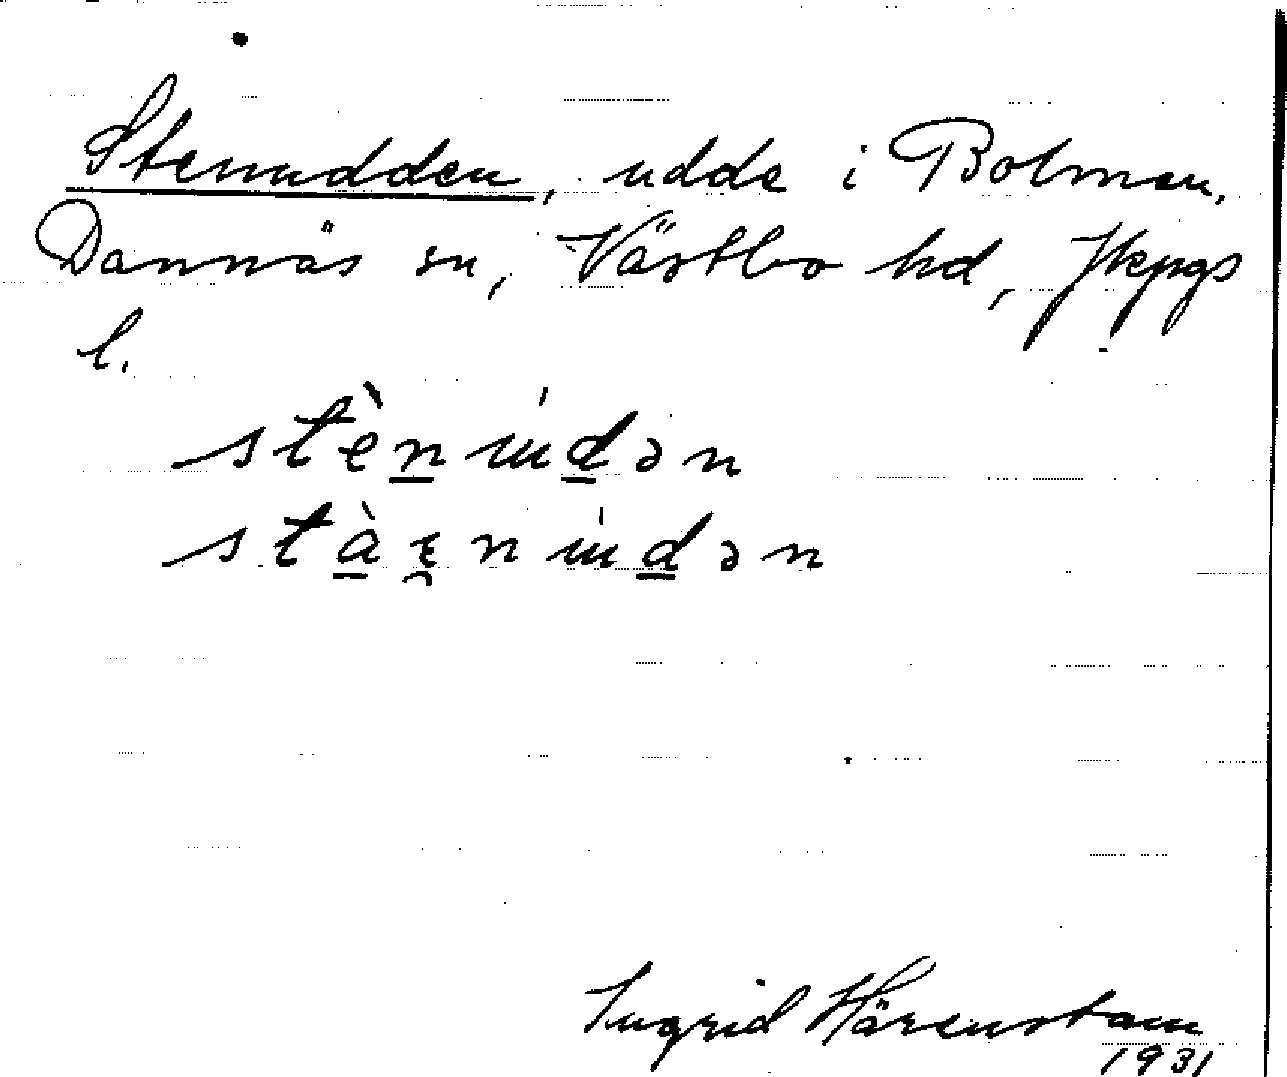 Stenudden, udde i Bolmen,
Dannäs sn, Västbo hd, Jkpgs
l.
stèn̲ u̍d̲ən
stà̲ɛ̯n u̍d̲ən
Ingrid Härenstam
1931